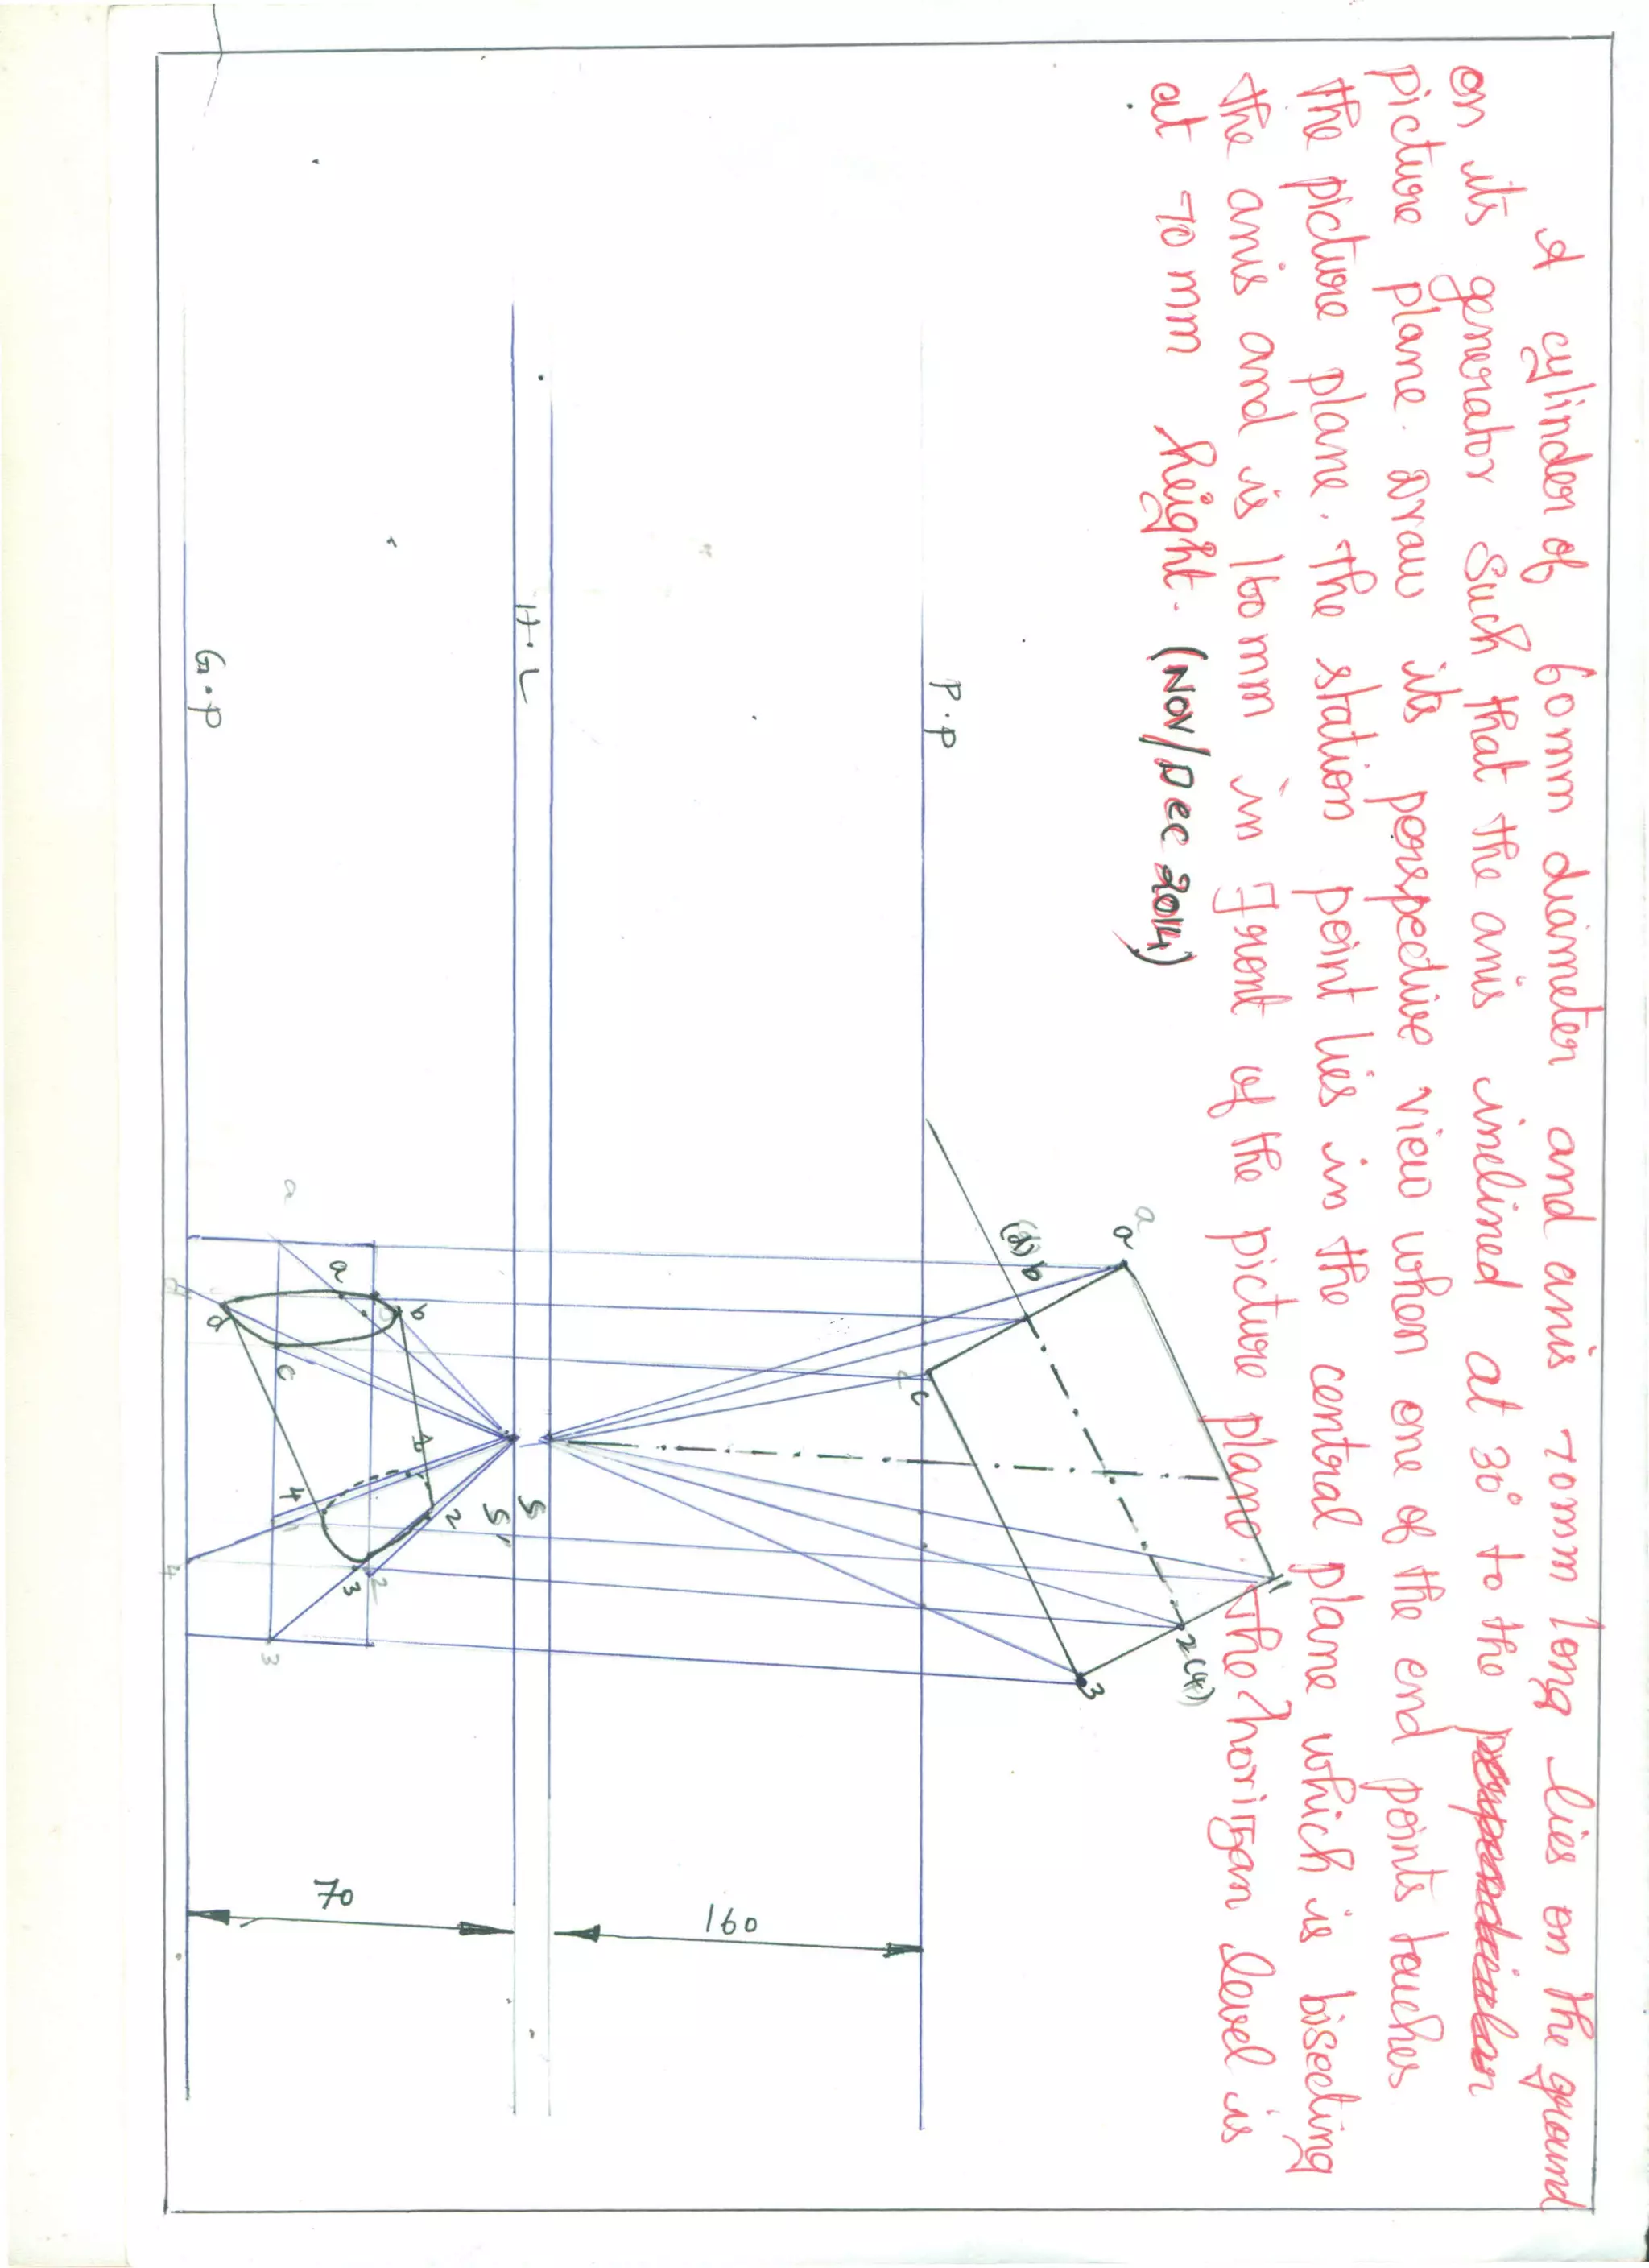 A cylinder of 60mm diameter and axis 70mm long lies on the ground
on its generator Such that the axis inclined at 30° to the
picture plane. Draw its perspective view when one of the end points touches
the picture plane. The station point lies in the central plane which is bisecting
the axis and is 160mm in front of the picture plane. The horizan level is
at 70 mm height. (NOV/DEC 2014)
a
a
(d) b
c
c
1
2(4)
3
P.P
160
S
S'
H.L
70
b
a
b
a
c
d
d
1
2
2
4
1
3
3
4
G.P